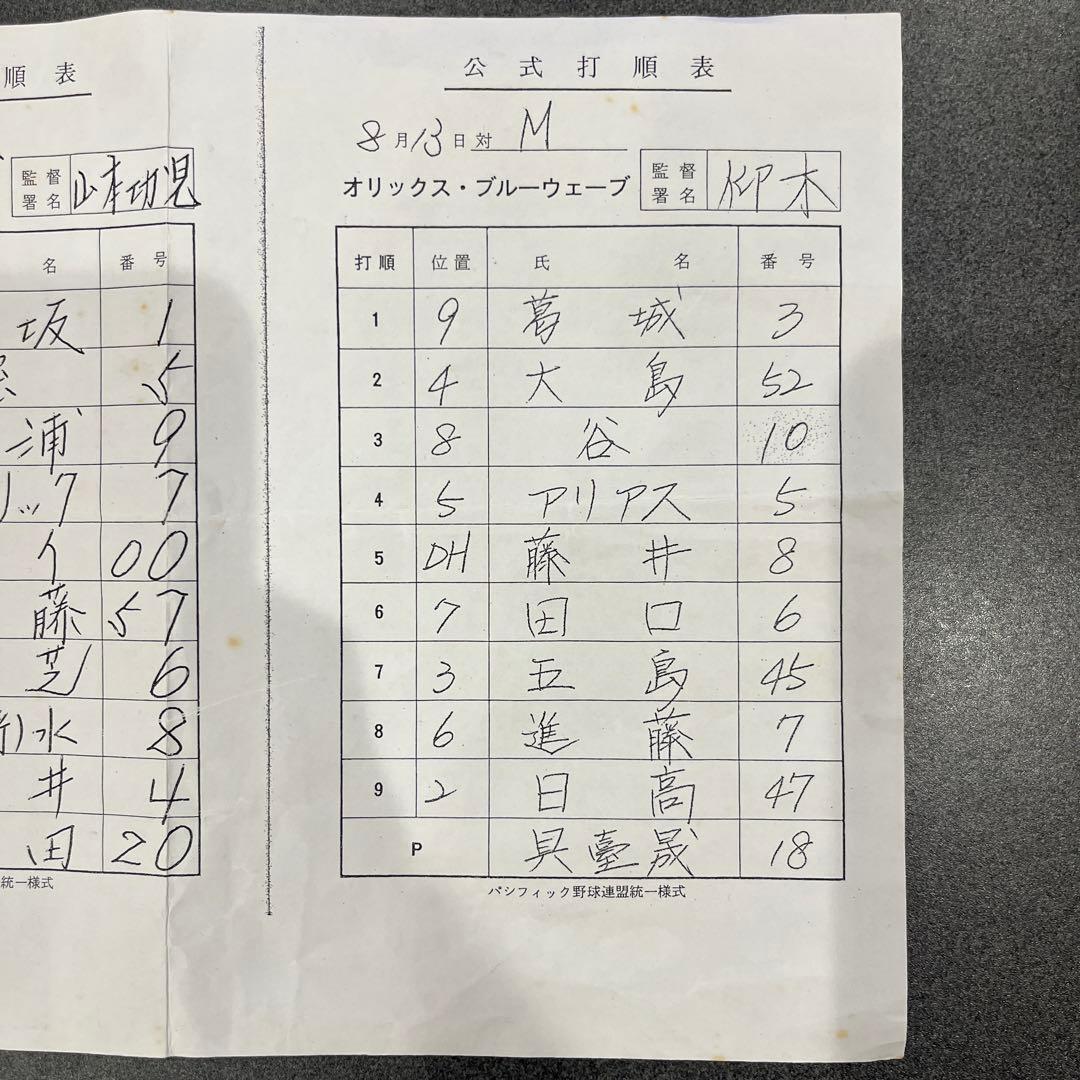 順 表
監督
署名
山本功児
名 番 号
坂 1
5
浦 9
リック 7
イ 00
藤 57
芝 6
水 8
井 4
田 20
統一様式
公 式 打 順 表
8月13日対 M
オリックス・ブルーウェーブ
監督
署名
仰木
打順 位置 氏 名 番 号
1 9 葛 城 3
2 4 大 島 52
3 8 谷 10
4 5 アリアス 5
5 DH 藤 井 8
6 7 田 口 6
7 3 五 島 45
8 6 進 藤 7
9 2 日 高 47
P 具臺晟 18
パシフィック野球連盟統一様式